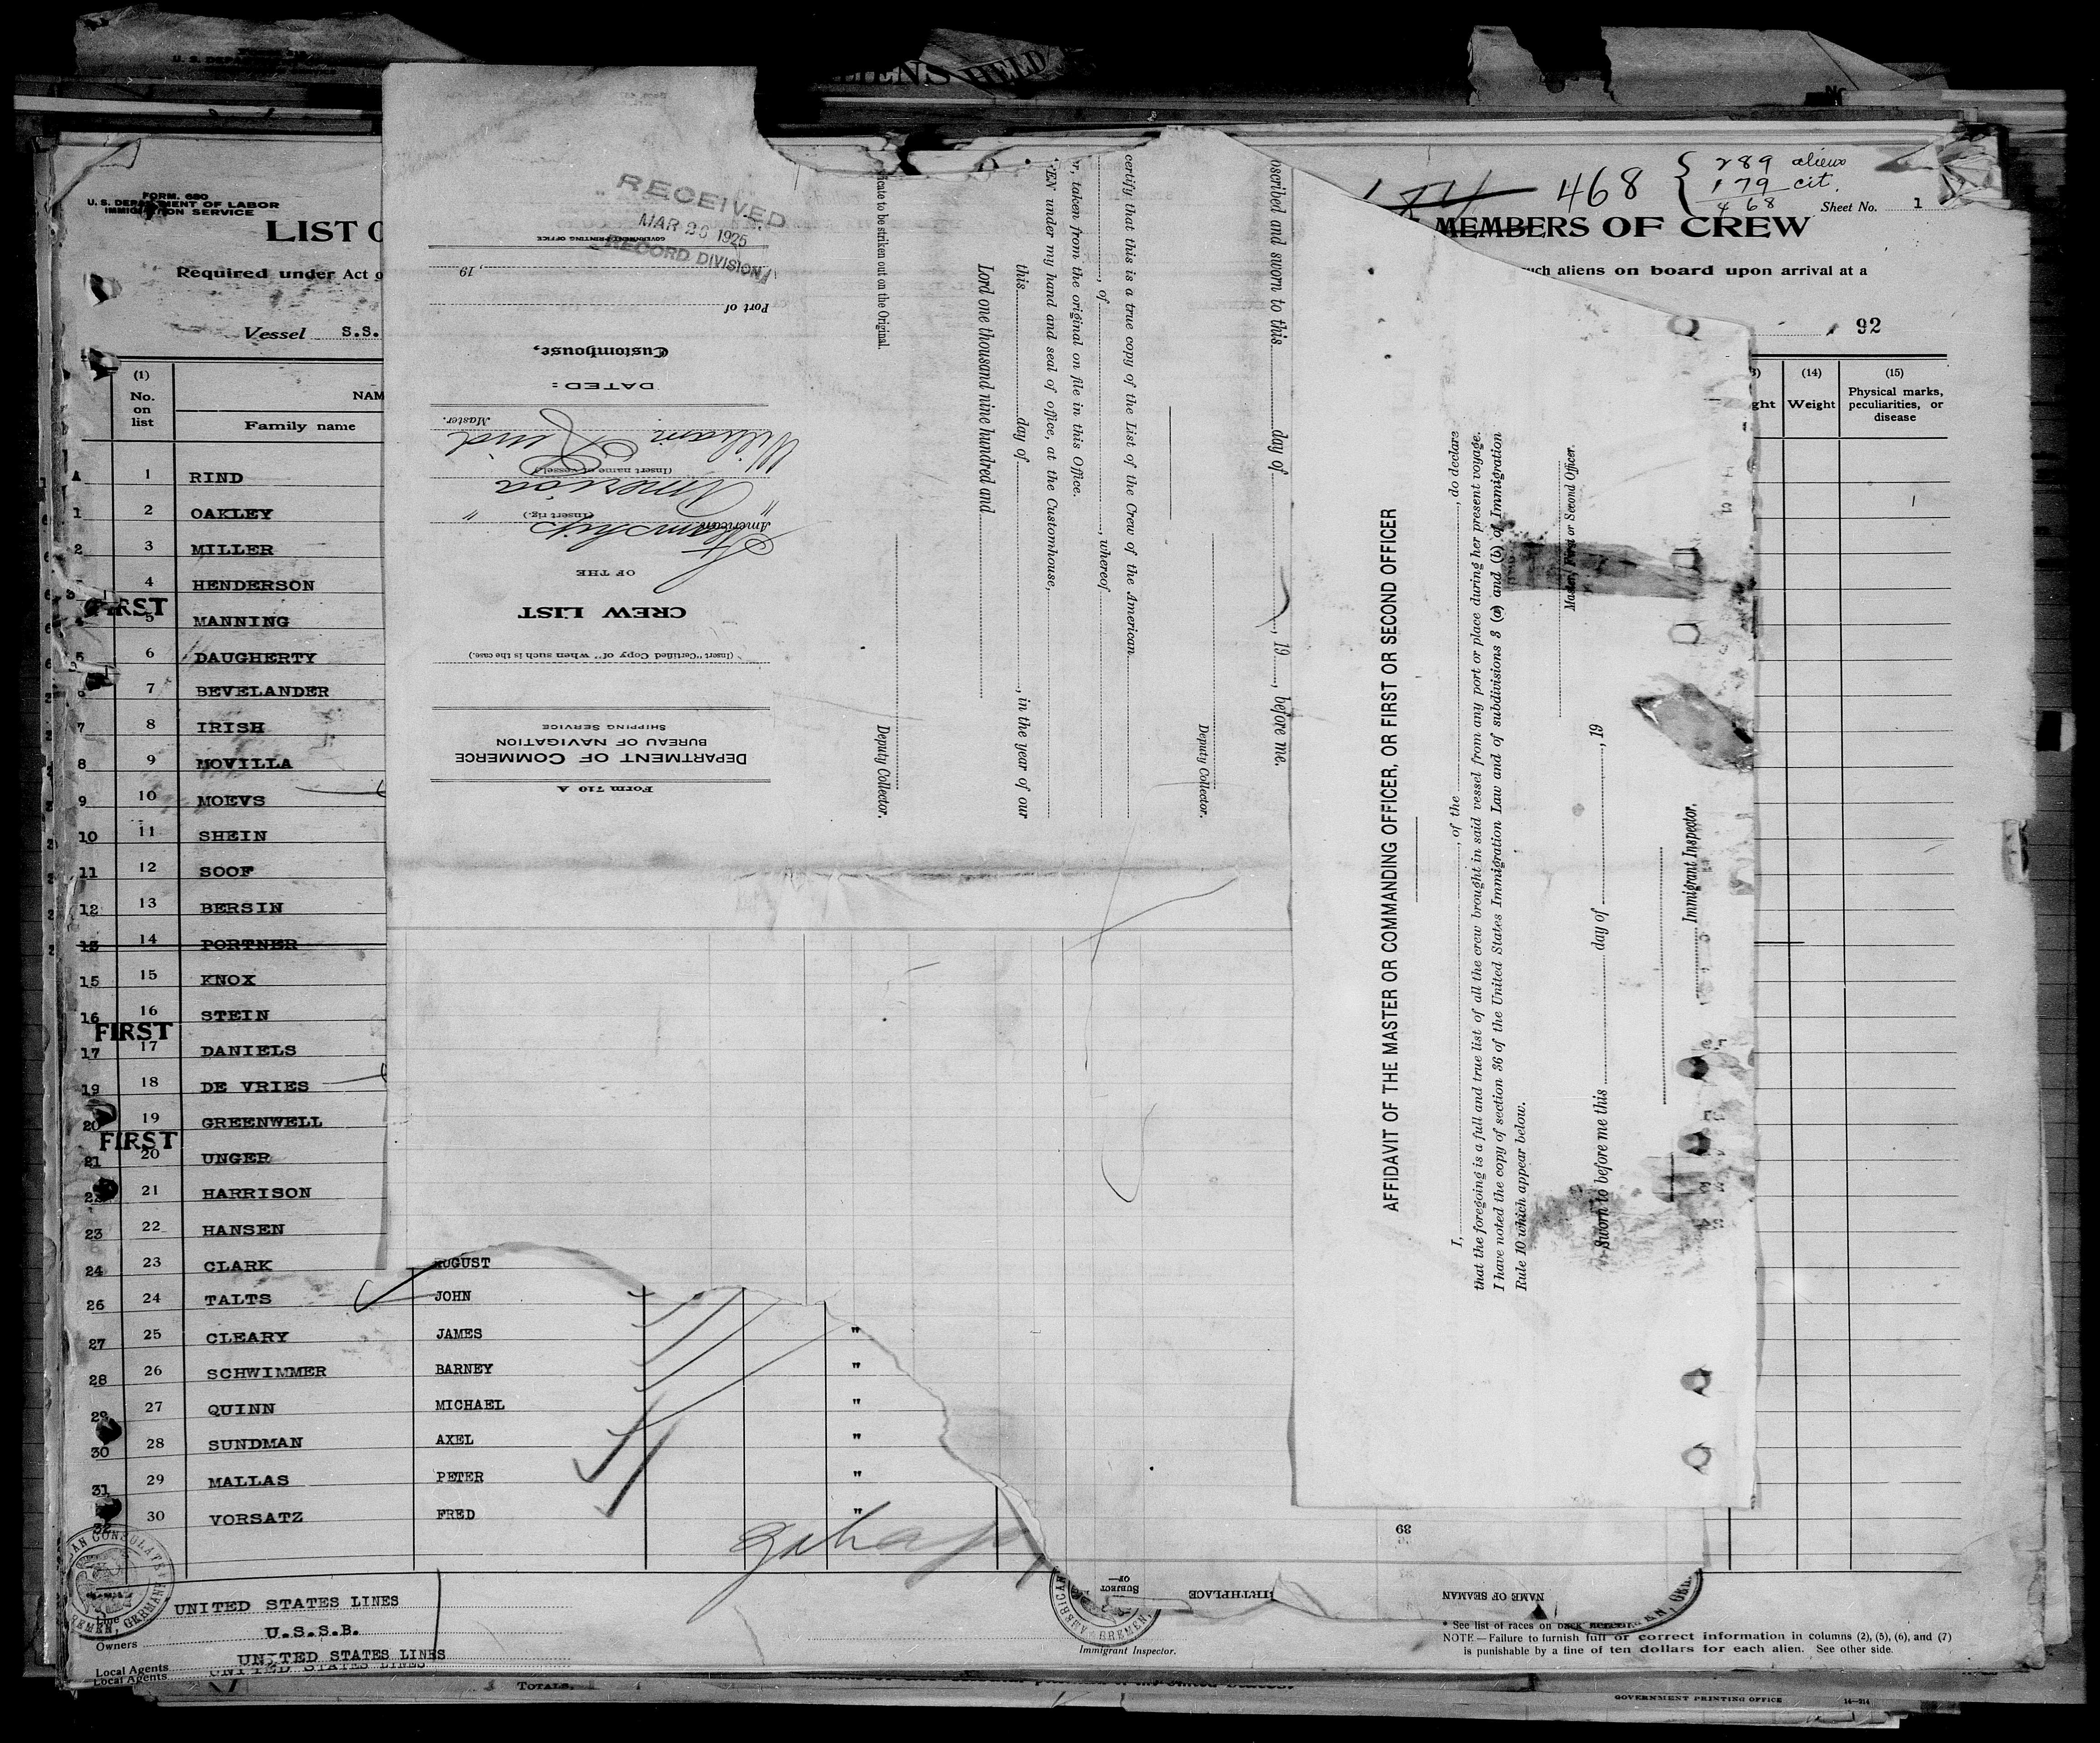 U. S. DEPA
ENS HELD
No
FORM. 680
U. S. DEPARTMENT OF LABOR
IMMIGRATION SERVICE
LIST O
Required under Act o
Vessel S.S.
468 { 289 aliens
179 cit.
468
Sheet No. 1
MEMBERS OF CREW
such aliens on board upon arrival at a
, 192
(1)
No.
on
list
NAM
Family name
ght
(14)
Weight
(15)
Physical marks,
peculiarities, or
disease
1 RIND
1 2 OAKLEY
2 3 MILLER
4 HENDERSON
FIRST
5 MANNING
5 6 DAUGHERTY
7 BEVELANDER
7 8 IRISH
8 9 MOVILLA
9 10 MOEVS
10 11 SHEIN
11 12 SOOF
12 13 BERSIN
13 14 PORTNER
15 15 KNOX
16 16 STEIN
FIRST
17 17 DANIELS
19 18 DE VRIES
20 19 GREENWELL
FIRST
21 20 UNGER
21 HARRISON
23 22 HANSEN
24 23 CLARK AUGUST
26 24 TALTS JOHN
27 25 CLEARY JAMES "
28 26 SCHWIMMER BARNEY "
29 27 QUINN MICHAEL "
30 28 SUNDMAN AXEL "
31 29 MALLAS PETER "
32 30 VORSATZ FRED "
AN CONSULATE
BREMEN, GERMANY
Line UNITED STATES LINES
Owners U.S.S.B.
Local Agents UNITED STATES LINES
Local Agents UNITED STATES LINES
TOTALS.
RECEIVED
MAR 26 1925
RECORD DIVISION
Form 710 A
DEPARTMENT OF COMMERCE
BUREAU OF NAVIGATION
SHIPPING SERVICE
(Insert "Certified Copy of" when such is the case.)
CREW LIST
OF THE
American Steamship
(Insert rig.)
" America "
(Insert name of vessel)
William Rind
Master.
DATED:
Customhouse,
Port of
, 19
GOVERNMENT PRINTING OFFICE
oscribed and sworn to this day of , 19 , before me.
Deputy Collector.
certify that this is a true copy of the List of the Crew of the American
, of , whereof
r, taken from the original on file in this Office.
EN under my hand and seal of office, at the Customhouse,
this day of , in the year of our
Lord one thousand nine hundred and
Deputy Collector.
icate to be striken out on the Original.
AFFIDAVIT OF THE MASTER OR COMMANDING OFFICER, OR FIRST OR SECOND OFFICER
I, , of the , do declare
that the foregoing is a full and true list of all the crew brought in said vessel from any port or place during her present voyage.
I have noted the copy of section 36 of the United States Immigration Law and of subdivisions 8 (a) and (b) of Immigration
Rule 10 which appear below.
Master, First or Second Officer.
Sworn to before me this day of , 19
Immigrant Inspector.
39
NAME OF SEAMAN
BIRTHPLACE
SUBJECT
OF—
AMERICAN
BREMEN,
Immigrant Inspector.
* See list of races on back hereof.
NOTE—Failure to furnish full or correct information in columns (2), (5), (6), and (7)
is punishable by a fine of ten dollars for each alien. See other side.
GOVERNMENT PRINTING OFFICE
14—314